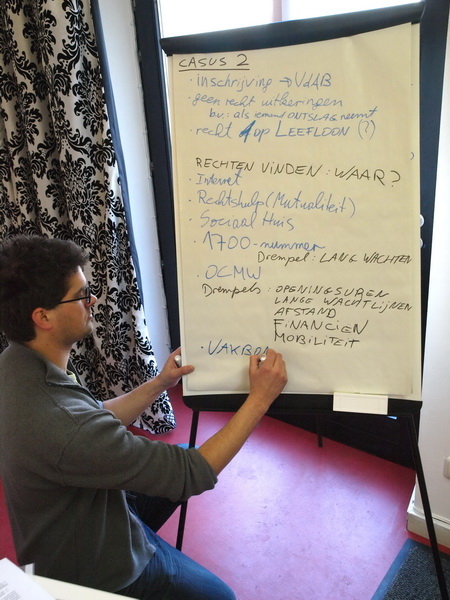 CASUS 2
· Inschrijving → VDAB
· geen recht uitkeringen
bv: als iemand ONTSLAG neemt
· recht op LEEFLOON (?)
RECHTEN VINDEN : WAAR?
· Internet
· Rechtshulp (Mutualiteit)
· Sociaal Huis
· 1700-nummer
Drempel : LANG WACHTEN
· OCMW
Drempels : OPENINGSUREN
LANGE WACHTLIJNEN
AFSTAND
FINANCIEN
MOBILITEIT
· VAKBON